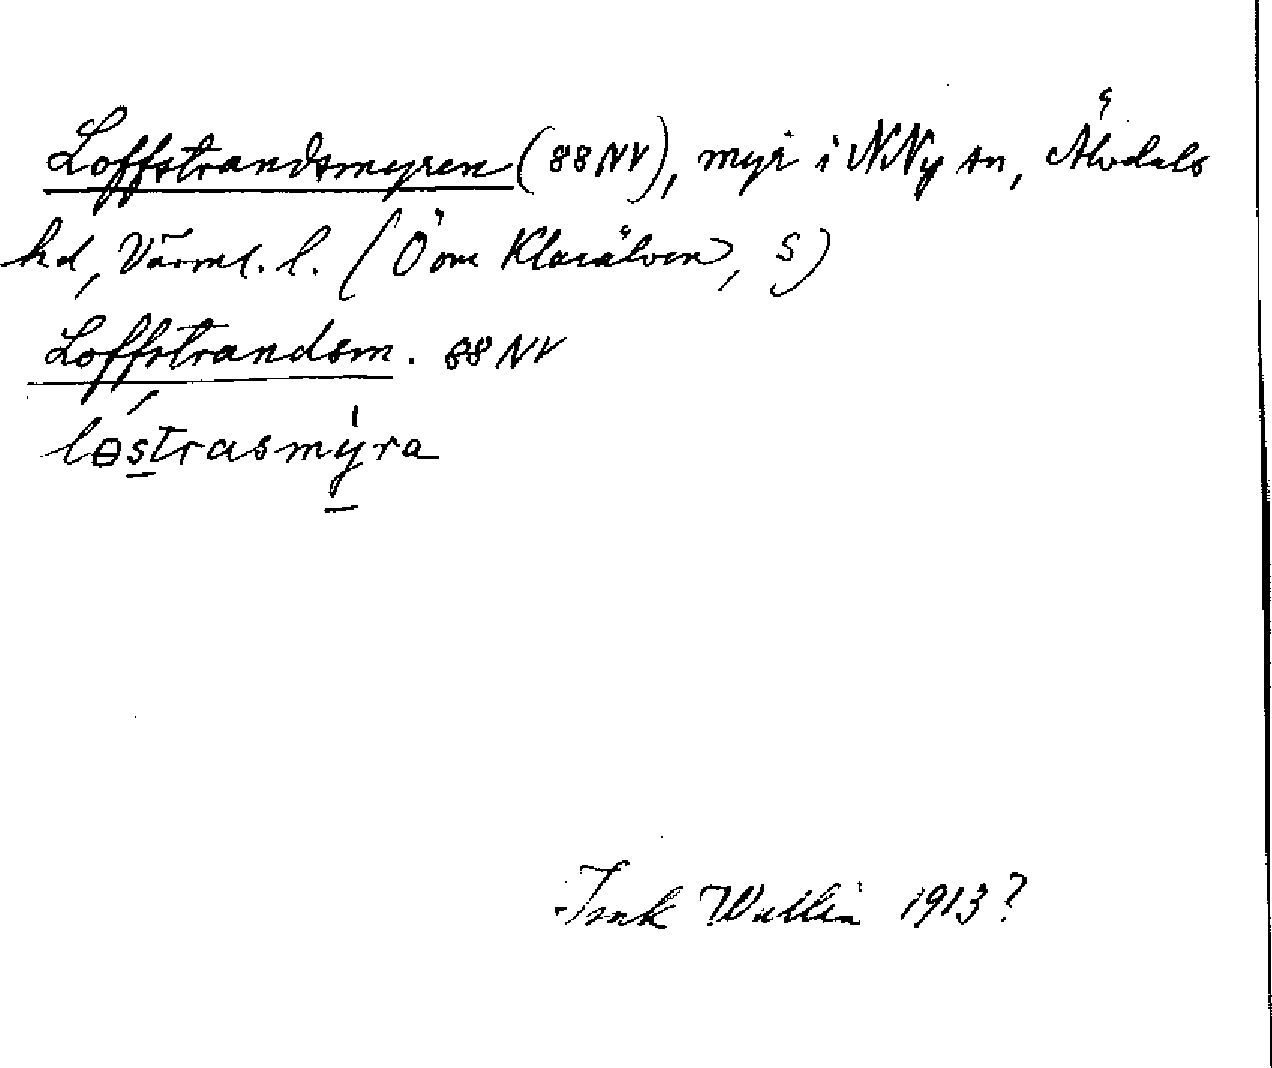 Loffstrandsmyren (88NV), myr i NNy sn, Älvdals
hd, Värml. l. (Ö om Klarälven, S)
Loffstrandsm. 88NV
lɵstrasmyra
Isak Wallin 1913?